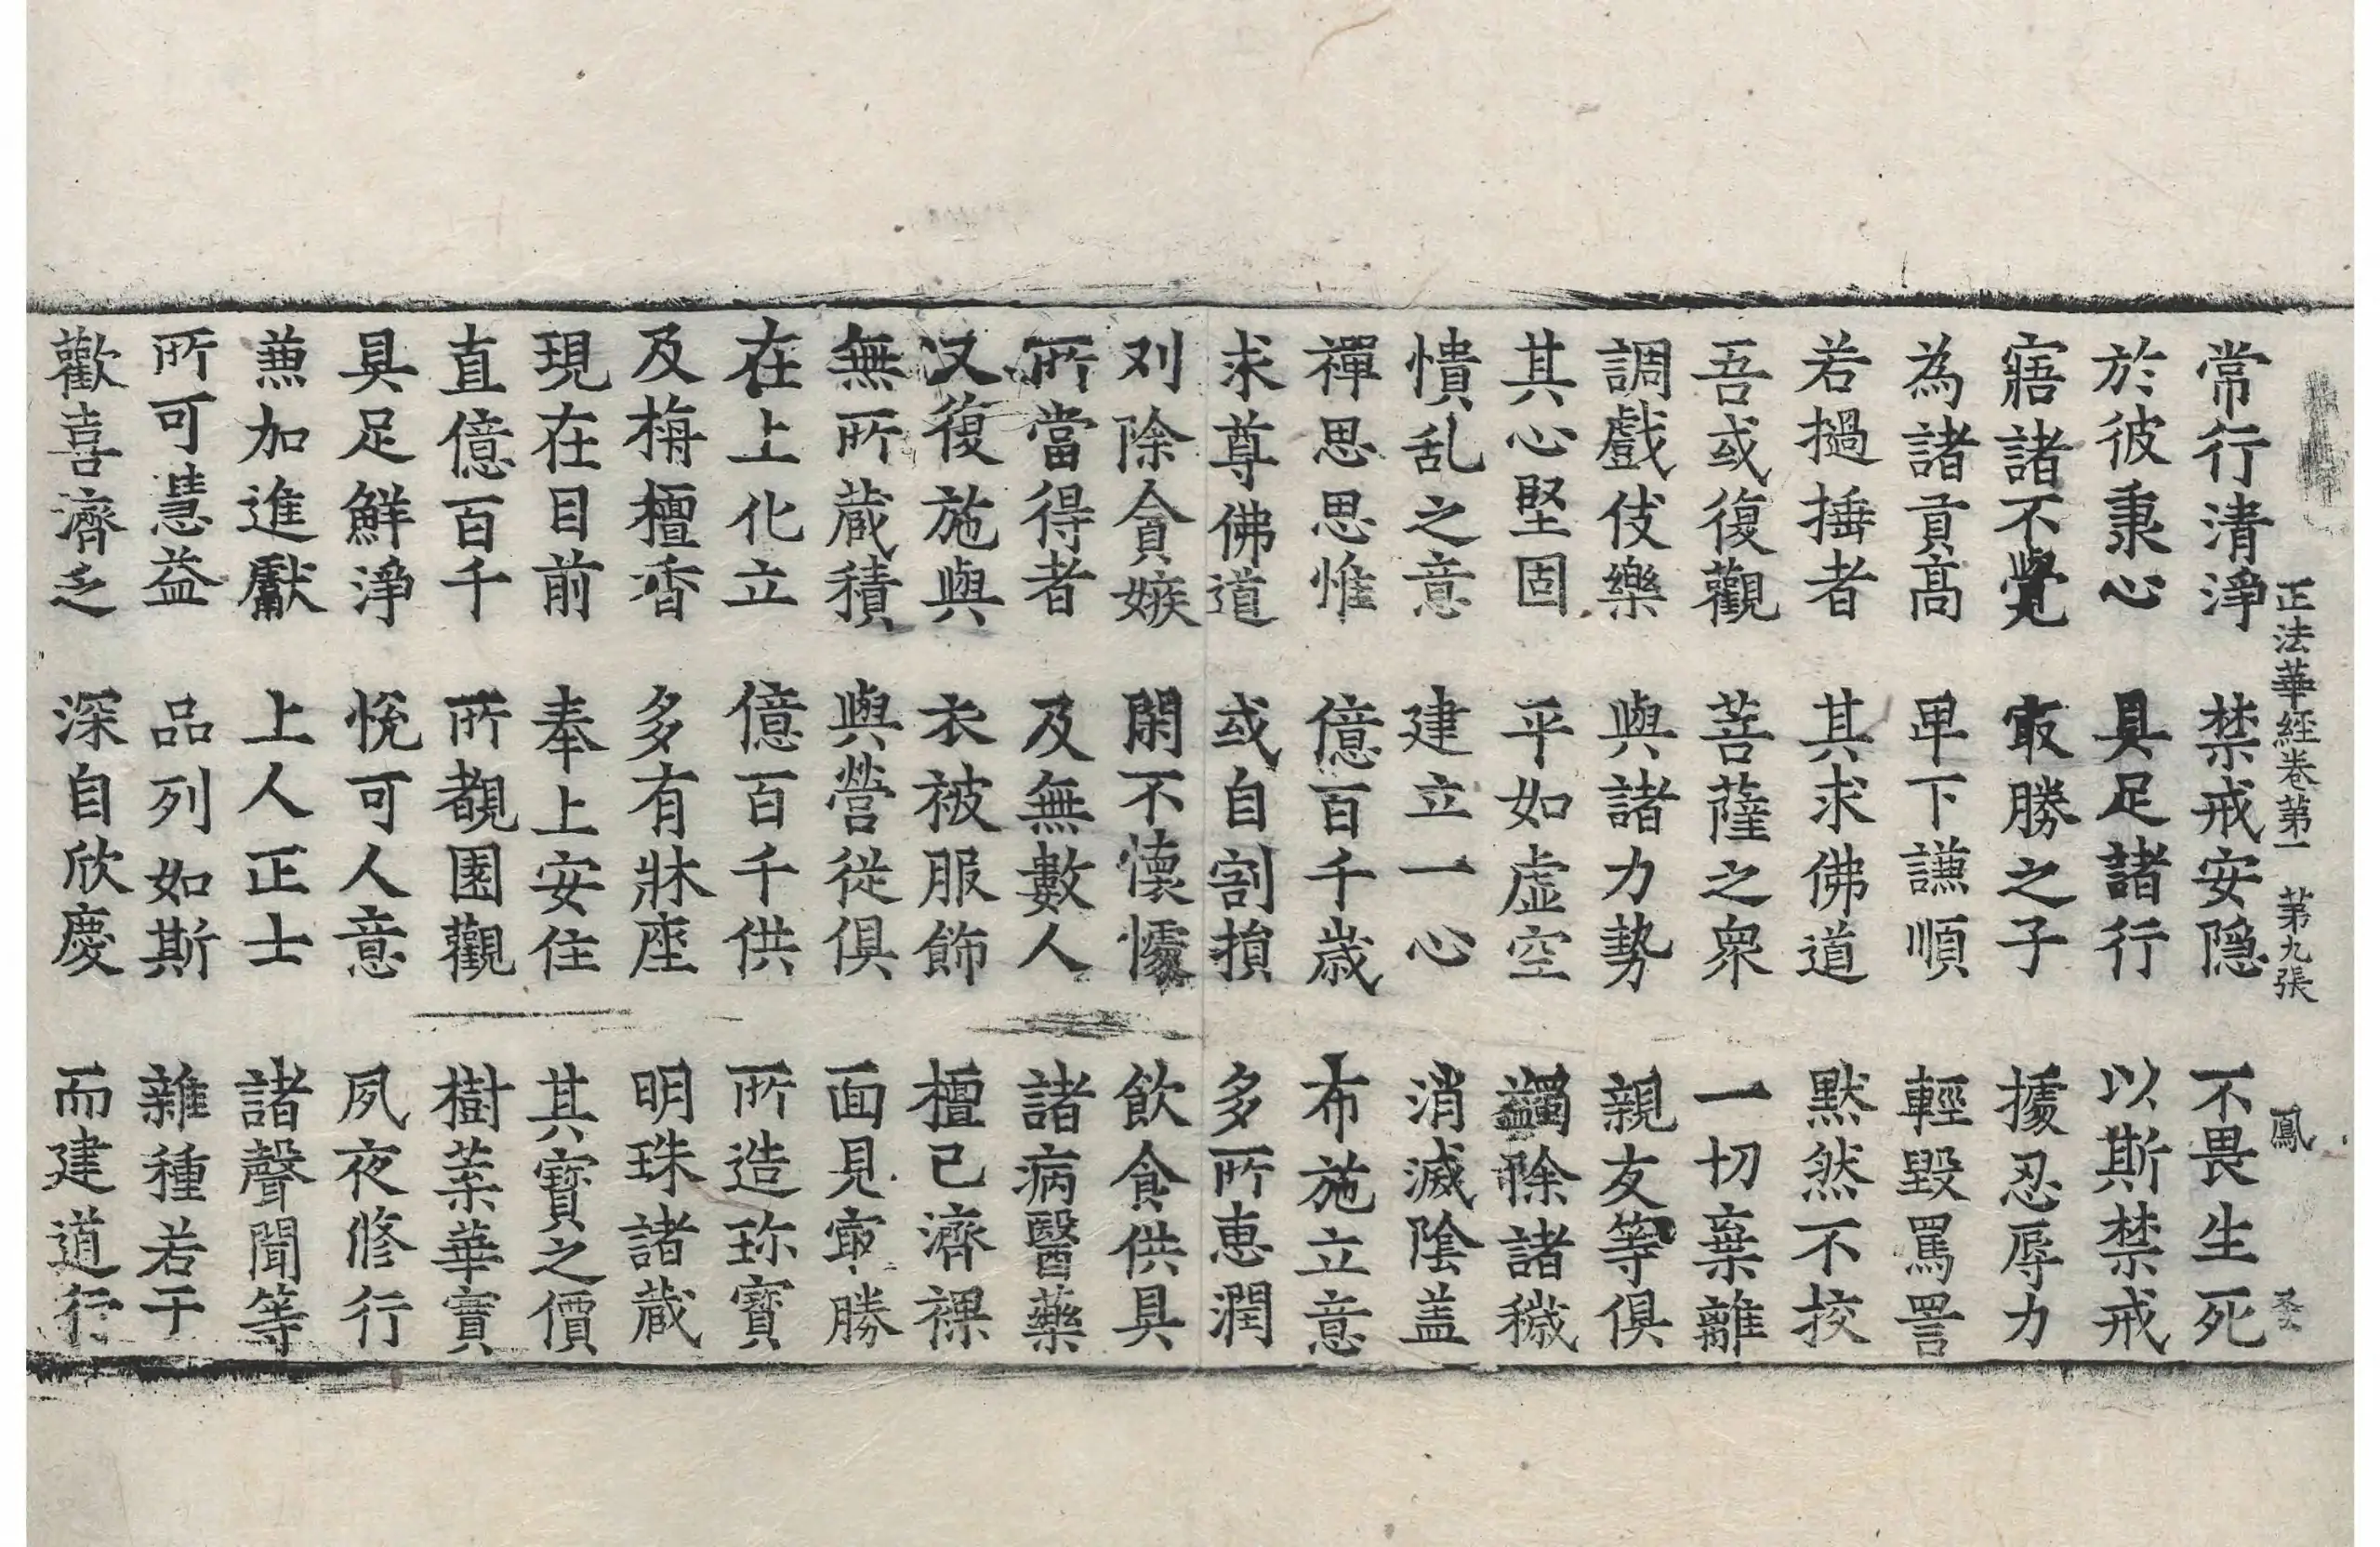 正法華經卷第一 第九張 鳳
常行清淨 禁戒安隐 不畏生死
於彼秉心 具足諸行 以斯禁戒
寤諸不覺 㝡勝之子 據忍辱力
為諸貢高 卑下謙順 輕毀罵詈
若撾捶者 其求佛道 默然不挍
吾或復觀 菩薩之衆 一切棄離
調戲伎樂 與諸力勢 親友等俱
其心堅固 平如虚空 蠲除諸穢
憒乱之意 建立一心 消滅陰盖
禪思思惟 億百千歲 布施立意
求尊佛道 或自割損 多所惠潤
刈除貪嫉 閑不懷懅 飲食供具
所當得者 及無數人 諸病醫藥
又復施與 衣被服飾 檀已濟裸
無所蔵積 與營從俱 面見㝡勝
在上化立 億百千供 所造珎寳
及栴檀香 多有牀座 明珠諸蔵
現在目前 奉上安住 其寳之價
直億百千 所覩園觀 樹葉華實
具足鮮淨 悅可人意 夙夜修行
兼加進獻 上人正士 諸聲聞等
所可慧益 品列如斯 雜種若干
歡喜濟乏 深自欣慶 而建道行